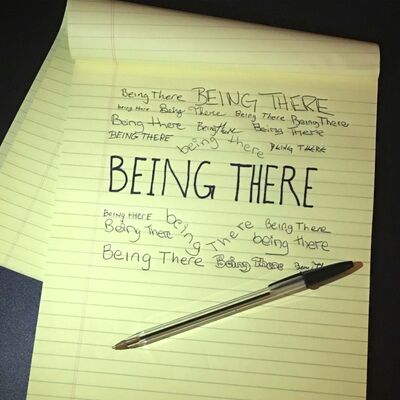 Being There BEING THERE
being there Being There Being There Being There
Being there Being there Being There
BEING THERE being there BEING THERE
BEING THERE
Being there being There Being There
Being There being there
Being There Being There Being Th